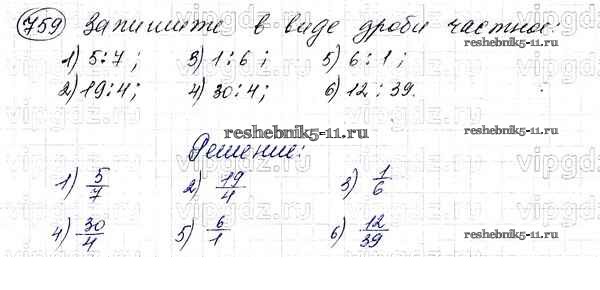 759 Запишите в виде дроби частное:
1) 5:7; 3) 1:6; 5) 6:1;
reshebnik5-11.ru
2) 19:4; 4) 30:4; 6) 12:39.
reshebnik5-11.ru
Решение:
1) 5/7 2) 19/4 3) 1/6
4) 30/4 5) 6/1 6) 12/39
reshebnik5-11.ru
vipgdz.ru